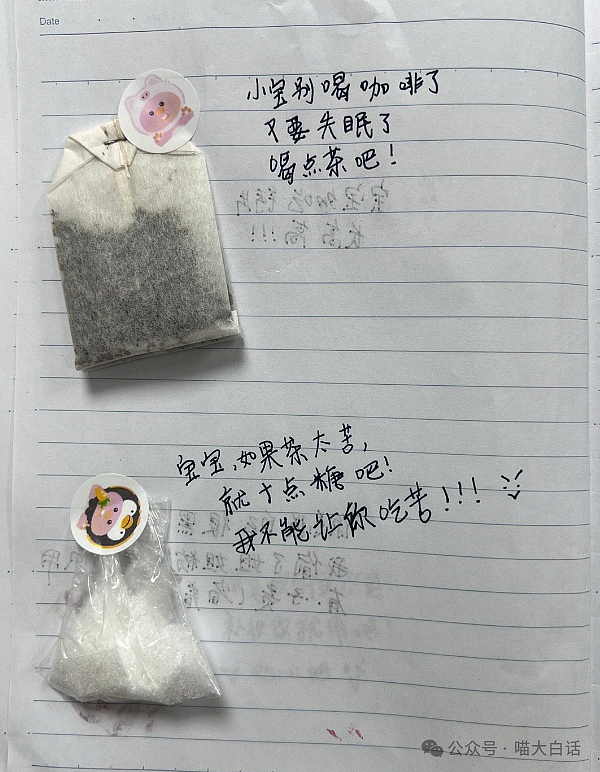 Date
小宝别喝咖啡了
不要失眠了
喝点茶吧！
宝宝,如果茶太苦,
就十点糖吧!
我不能让你吃苦!!!
公众号 · 喵大白话